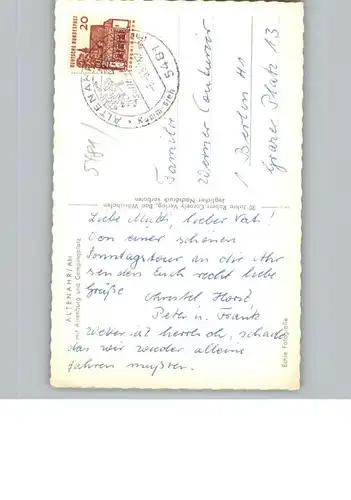 DEUTSCHE BUNDESPOST
20
ALTENAHR
5481
5481/
Familie
Werner
1 Berlin 41
Grazer Platz 13
30 Jahre Robert Cornely Verlag, Bad Wörishofen
Jeglicher Nachdruck verboten
ALTENAHR/AHR
mit Arrenburg und Campingplatz
Liebe Mutti, lieber Vati!
Von einer schönen
Sonntagstour an die Ahr
senden Euch recht liebe
Grüße
Christel Horst
Peter u. Frank
Wetter ist herrlich, schade
das wir wieder alleine
fahren mußten.
Echte Fotografie